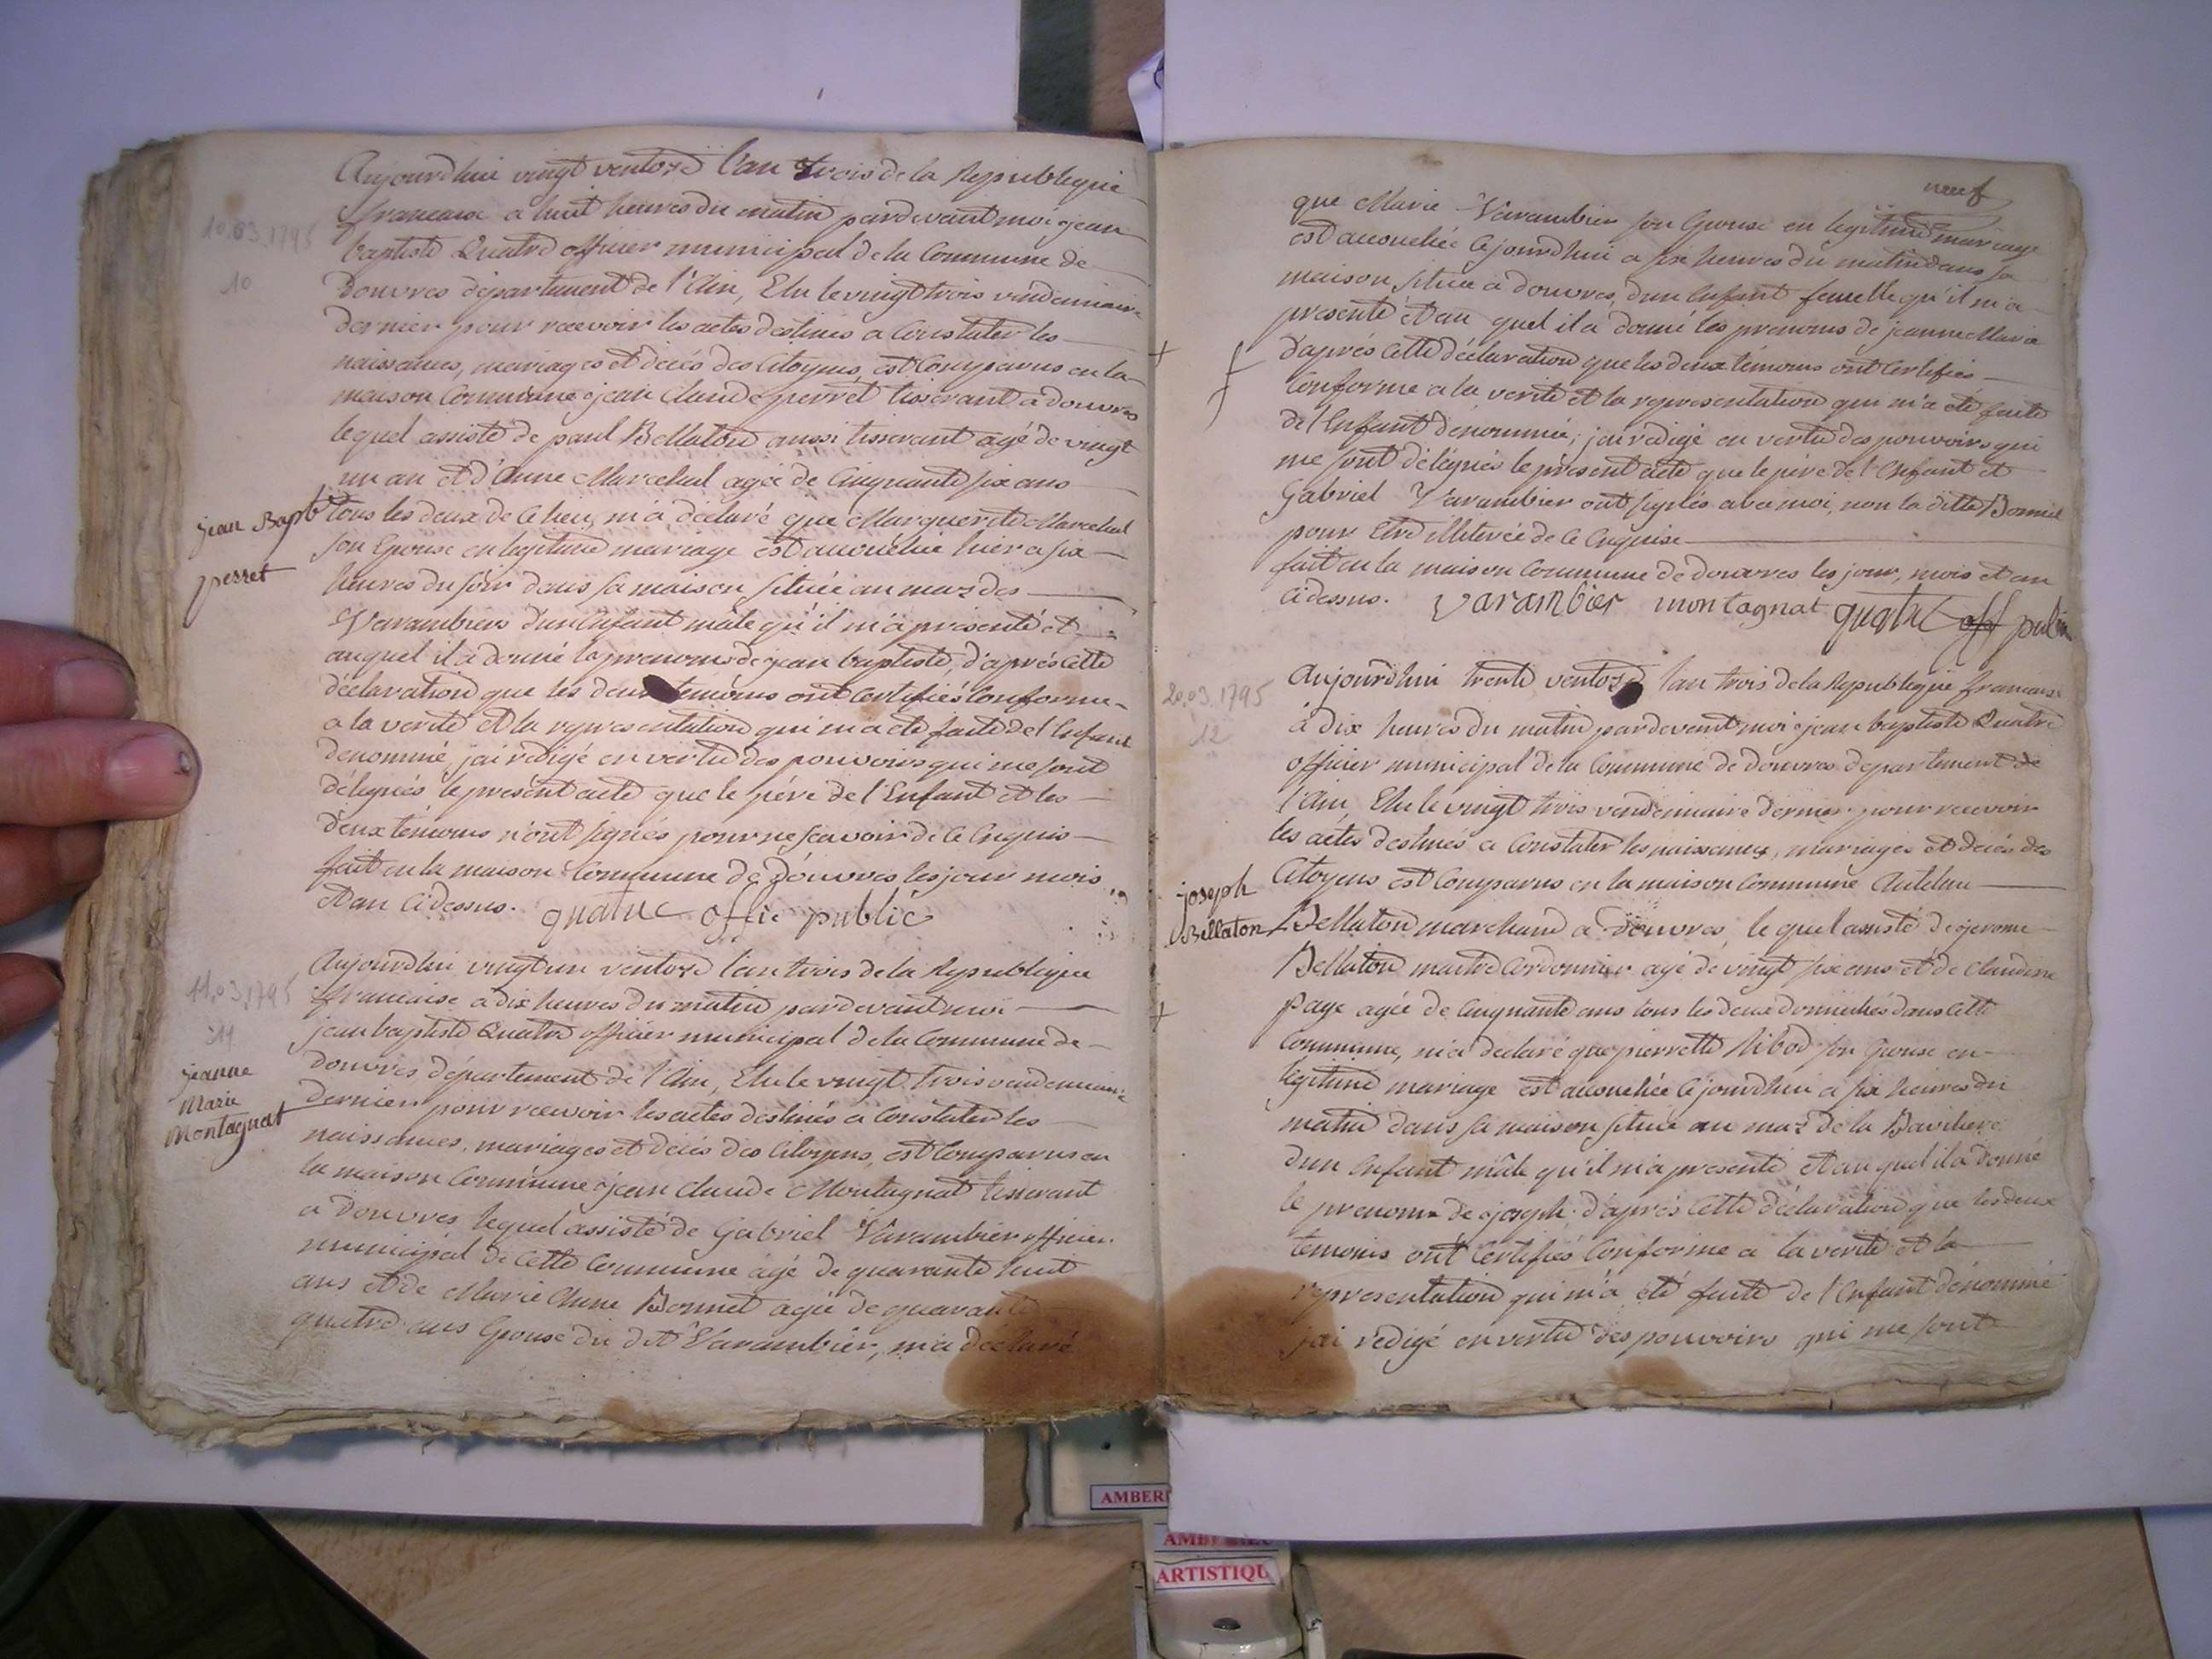 Aujourdhui vingt ventose l'an trois de la Republique
francaise a huit heures du matin pardevant moi jean
baptiste Quatre officier municipal de la Commune de
Douvres département de l'Ain, Elu le vingt trois vendemiaire
dernier pour recevoir les actes destinés a Constater les
naissances, mariages et décés des Citoyens, est Comparus en la
maison Commune jean Claude perret tisserant a douvres
lequel assisté de paul Bellaton aussi tisserant agé de vingt
un an et d'Anne Marechal agée de Cinquante six ans
tous les deux de Ce lieu, m'a déclaré que Marguerite Marechal
son Epouse en legitime mariage est accouchée hier a six
heures du soir dans sa maison située au maz des
Varambiers d'un Enfant mâle qu'il m'a présenté et
auquel il a donné le prenoms de jean baptiste, d'aprés cette
déclaration que les deux temoins ont Certifiés Conforme
a la verité et la representation qui m'a été faite de l'Enfant
denommé, j'ai rédigé en vertu des pouvoirs qui me sont
délegués le présent acte que le pére de l'Enfant et les
deux témoins n'ont signés pour ne sçavoir de Ce Enquis
fait en la maison Commune de Douvres les jour mois
et an Cidessus. quatre offic public
10.03.1795
10
jean Bapt
perret
Aujourdhui vingt un ventose l'an trois de la Republique
francaise a dix heures du matin pardevant moi
jean baptiste Quatre officier municipal de la Commune de
Douvres département de l'Ain, Elu le vingt trois vendemiaire
Dernier pour recevoir les actes destinés a Constater les
naissances, mariages et décés des Citoyens, est Comparus en
la maison Commune jean Claude Montagnat tisserant
a Douvres lequel assisté de Gabriel Varambier officier
municipal de Cette Commune agé de quarante huit
ans et de Marie Anne Bonnet agée de quarante
quatre ans Epouse du dit Varambier, m'a déclaré
11.03.1795
11
jeanne
Marie
Montagnat
neuf
que Marie Varambier son Epouse en legitime mariage
est accouchée Cejourdhui a six heures du matin dans sa
maison située a douvres, d'un Enfant femelle qu'il m'a
présenté et au quel il a donné les prenoms de jeanne Marie
d'aprés Cette déclaration que les deux témoins ont Certifiés
Conforme a la verité et la representation qui m'a été faite
de l'Enfant dénommé, j'ai rédigé en vertu des pouvoirs qui
me sont délegués le présent acte que le pére de l'Enfant et
Gabriel Varambier ont signés avec moi, non la ditte Bonnet
pour Etre illiterée de Ce Enquise
fait en la maison Commune de douvres les jour, mois et an
Cidessus. varambier montagnat quatre off public
Aujourdhui trente ventose l'an trois de la Republique francaise
à dix heures du matin pardevant moi jean baptiste Quatre
officier municipal de la Commune de Douvres departement de
l'Ain, Elu le vingt trois vendemiaire dernier pour recevoir
les actes destinés a Constater les naissances, mariages et décés des
Citoyens est Comparus en la maison Commune Antelme
Bellaton marchand a Douvres, le quel assisté de jerome
Bellaton maitre Cordonnier agé de vingt six ans et de Claudine
Page agée de Cinquante ans tous les deux domiciliés dans Cette
Commune, m'a déclaré que pierrette Ribod son Epouse en
légitime mariage est accouchée Cejourdhui a six heures du
matin dans sa maison située au maz de la
d'un Enfant mâle qu'il m'a presenté et au quel il a donné
le prenoms de joseph. d'aprés Cette déclaration que les deux
temoins ont Certifiés Conforme a la verité et la
representation qui m'a été faite de l'Enfant dénommé
j'ai rédigé en vertu des pouvoirs qui me sont
20.03.1795
12
joseph
Bellaton
AMBER
ARTISTIQU